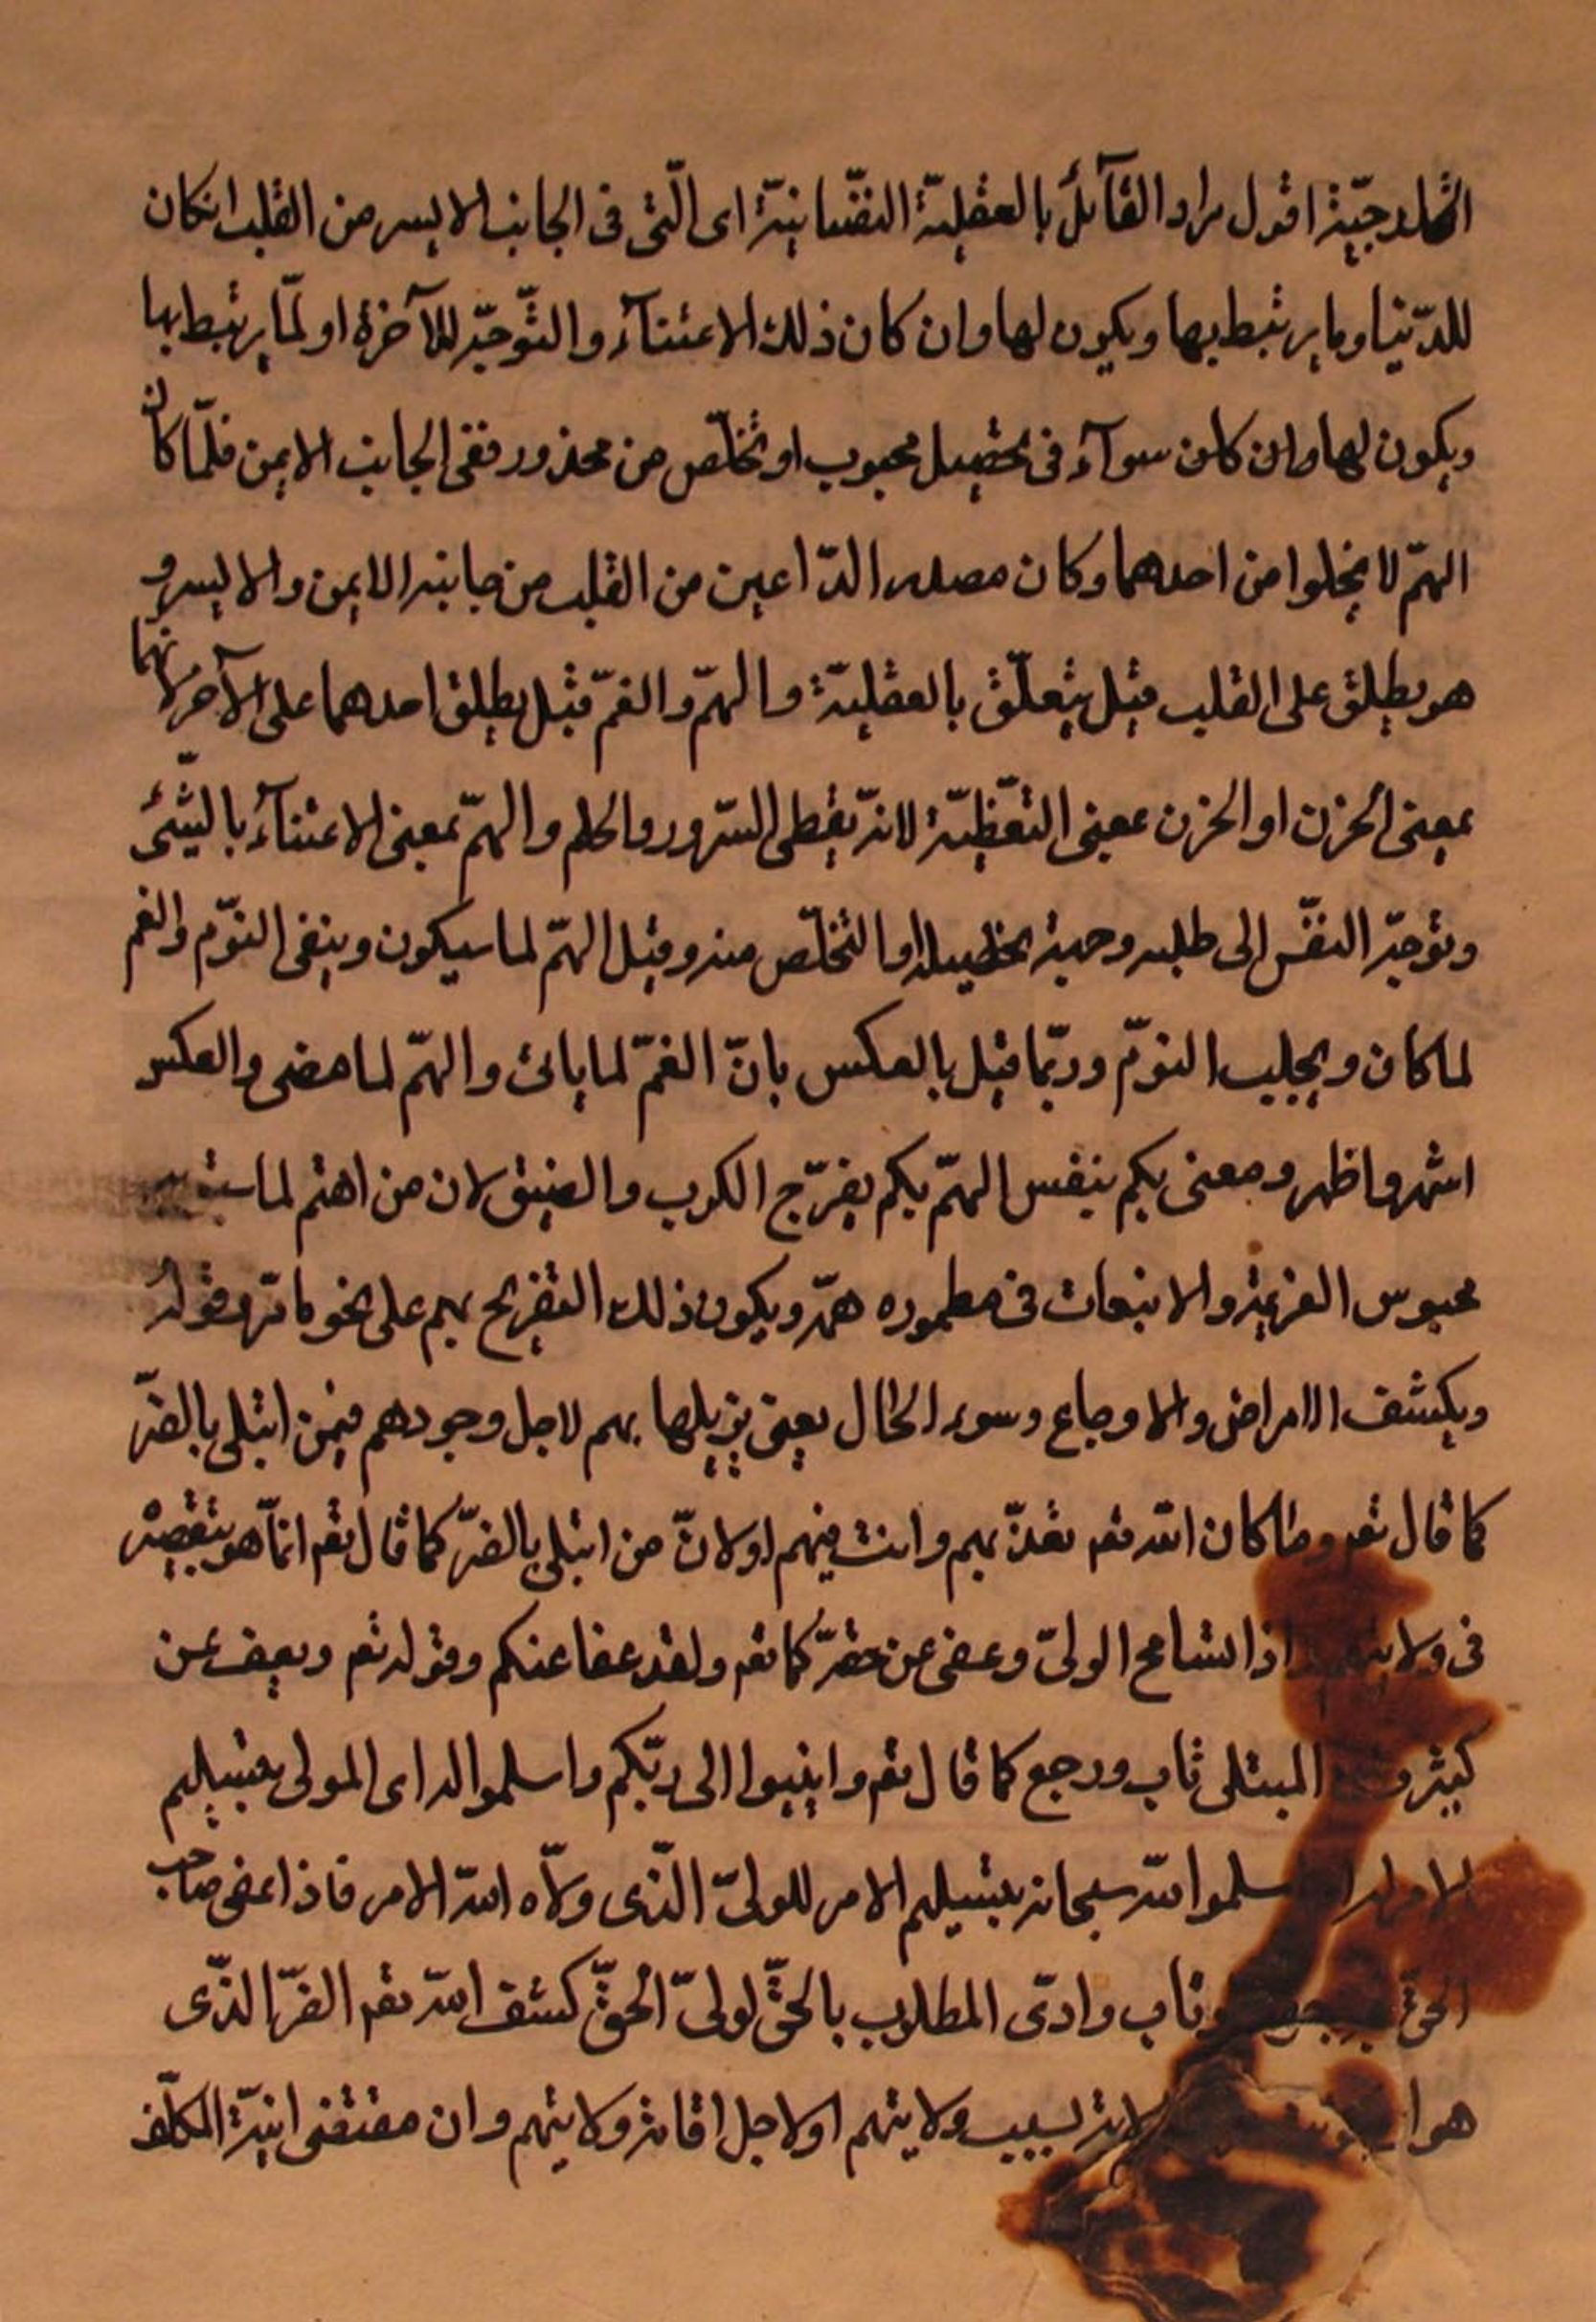 الثلدجيّة اقول مراد القآئل بالعقليّة النفّسانيّة اى الّتى فى الجانب الايسر من القلب انكان
للدّنيا وما يرتبط بها ويكون لها وان كان ذلك الاعتنآء والتّوجّه للآخرة او لمّا يرتبط بها
ويكون لها وان كان سوآء فى تحصيل محبوب او تخلّص من محذور ففى الجانب الايمن فلمّا كان
الهمّ لا يخلوا من احدهما وكان مصدر الدّاعين من القلب من جانبه الايمن والايسر و
هو يطلق على القلب قيل يتعلّق بالعقليّة والهمّ والغمّ قيل يطلق احدهما على الآخر لانهما
بمعنى الحزن او الحزن بمعنى التغّظيّة لانّه يغطى السّرور والحلم والهمّ بمعنى الاعتنآء بالشّئ
وتوجّه النفّس الى طلبه وجهة تحصيله او التخلّص منه وقيل الهمّ لما سيكون وينفى النوّم والغم
لما كان ويجلب النوّم وربّما قيل بالعكس بانّ الغمّ لما ياتى والهمّ لما مضى والعكس
اشهر واظهر ومعنى بكم ينفس الهمّ بكم يفرّج الكرب والضيق لان من اهتم لما
محبوس العزيمة والانبعاث فى مطموره همّه ويكون ذلك التفريح بهم على نحو ما مرّ وقوله
ويكشف الامراض والاوجاع وسوء الحال يعنى يزيلها بهم لاجل وجودهم فيمن ابتلى بالضّر
كما قال تعم وما كان الله تعم يعذّبهم وانت فيهم او لانّ من ابتلى بالضرّ كما قال تعم انمّا هو بتقصيره
فى ولايتهم اذا تسامح الولىّ وعفى عن حقّه كما تعم ولقد عفا عنكم وقوله تعم ويعف عن
كثير و المبتلى تاب ورجع كما قال تعم وانيبوا الى ربّكم واسلموا له اى المولى بتسليم
الامر له اسلموا لله سبحانه بتسليم الامر للولىّ الّذى ولاّه الله الامر فاذا عفى صاحب
الحقّ وتاب وادّى المطلاب بالحقّ لولىّ الحقّ كشف الله تعم الضرّ الذّى
هو لانّه بسبب ولايتهم او لاجل اقامة ولايتهم وان مقتضى انيّة المكلّف